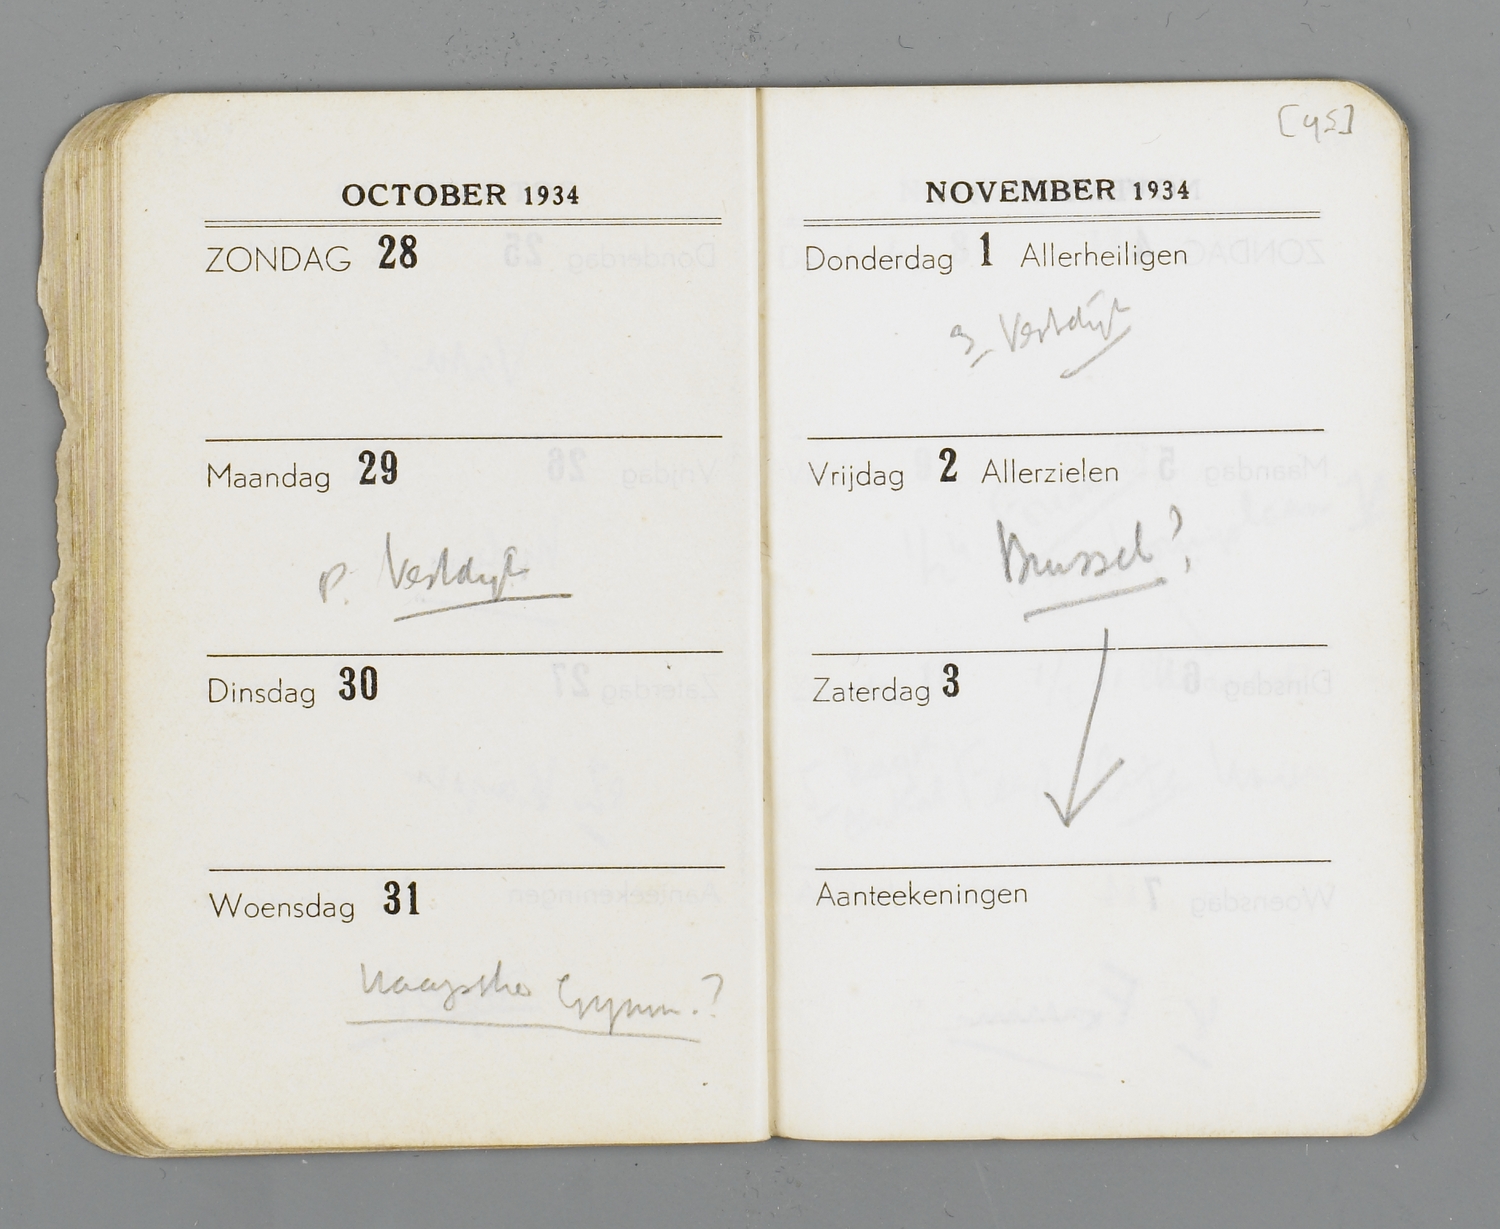 OCTOBER 1934
ZONDAG 28
Maandag 29
p. Verdijk
Dinsdag 30
Woensdag 31
Haagsche Gymn.?
[45]
NOVEMBER 1934
Donderdag 1 Allerheiligen
Vrijdag 2 Allerzielen
Brussel?
Zaterdag 3
Aanteekeningen